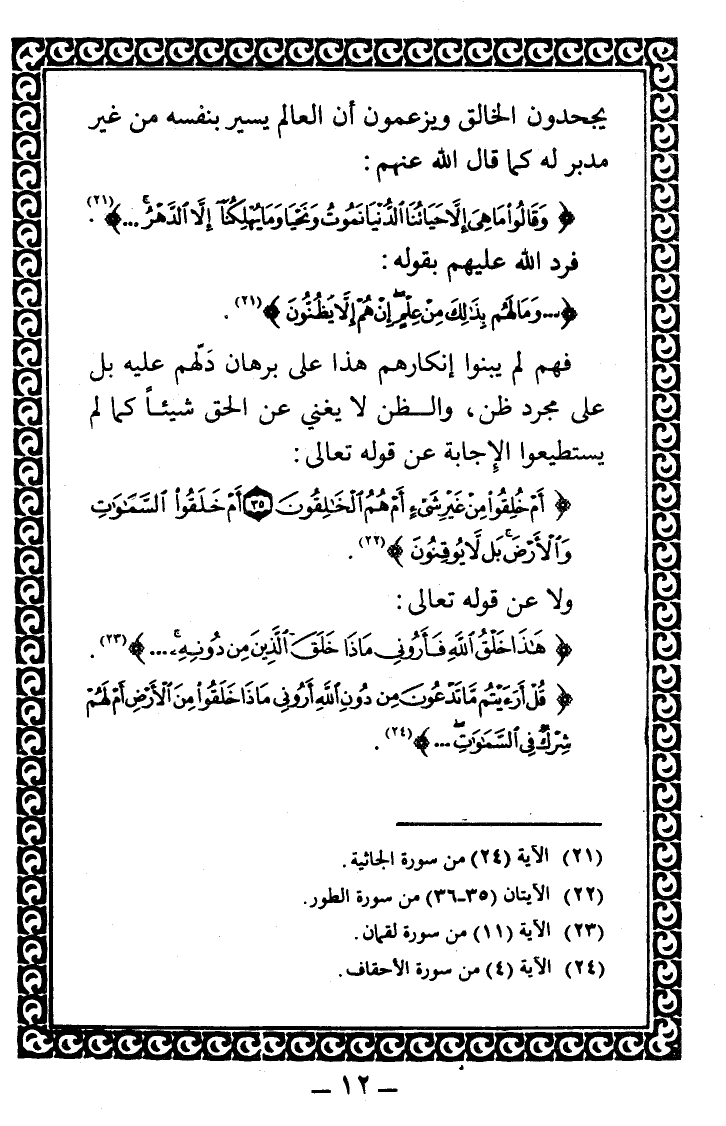 يجحدون الخالق ويزعمون أن العالم يسير بنفسه من غير
مدبر له كما قال الله عنهم :
﴿ وَقَالُوا۟ مَا هِىَ إِلَّا حَيَاتُنَا ٱلدُّنْيَا نَمُوتُ وَنَحْيَا وَمَا يُهْلِكُنَآ إِلَّا ٱلدَّهْرُ ۚ ... ﴾(٢١) .
فرد الله عليهم بقوله :
﴿ ... وَمَا لَهُم بِذَٰلِكَ مِنْ عِلْمٍ ۖ إِنْ هُمْ إِلَّا يَظُنُّونَ ﴾(٢١) .
فهم لم يبنوا إنكارهم هذا على برهان دَلّهم عليه بل
على مجرد ظن ، والـظن لا يغني عن الحق شيئـاً كما لم
يستطيعوا الإجابة عن قوله تعالى :
﴿ أَمْ خُلِقُوا۟ مِنْ غَيْرِ شَىْءٍ أَمْ هُمُ ٱلْخَٰلِقُونَ ٣٥ أَمْ خَلَقُوا۟ ٱلسَّمَٰوَٰتِ
وَٱلْأَرْضَ ۚ بَل لَّا يُوقِنُونَ ﴾(٢٢) .
ولا عن قوله تعالى :
﴿ هَٰذَا خَلْقُ ٱللَّهِ فَأَرُونِى مَاذَا خَلَقَ ٱلَّذِينَ مِن دُونِهِۦ ۚ ... ﴾(٢٣) .
﴿ قُلْ أَرَءَيْتُم مَّا تَدْعُونَ مِن دُونِ ٱللَّهِ أَرُونِى مَاذَا خَلَقُوا۟ مِنَ ٱلْأَرْضِ أَمْ لَهُمْ
شِرْكٌ فِى ٱلسَّمَٰوَٰتِ ۖ ... ﴾(٢٤) .
(٢١) الآية (٢٤) من سورة الجاثية .
(٢٢) الآيتان (٣٥ـ٣٦) من سورة الطور .
(٢٣) الآية (١١) من سورة لقمان .
(٢٤) الآية (٤) من سورة الأحقاف .
ـ ١٢ ـ